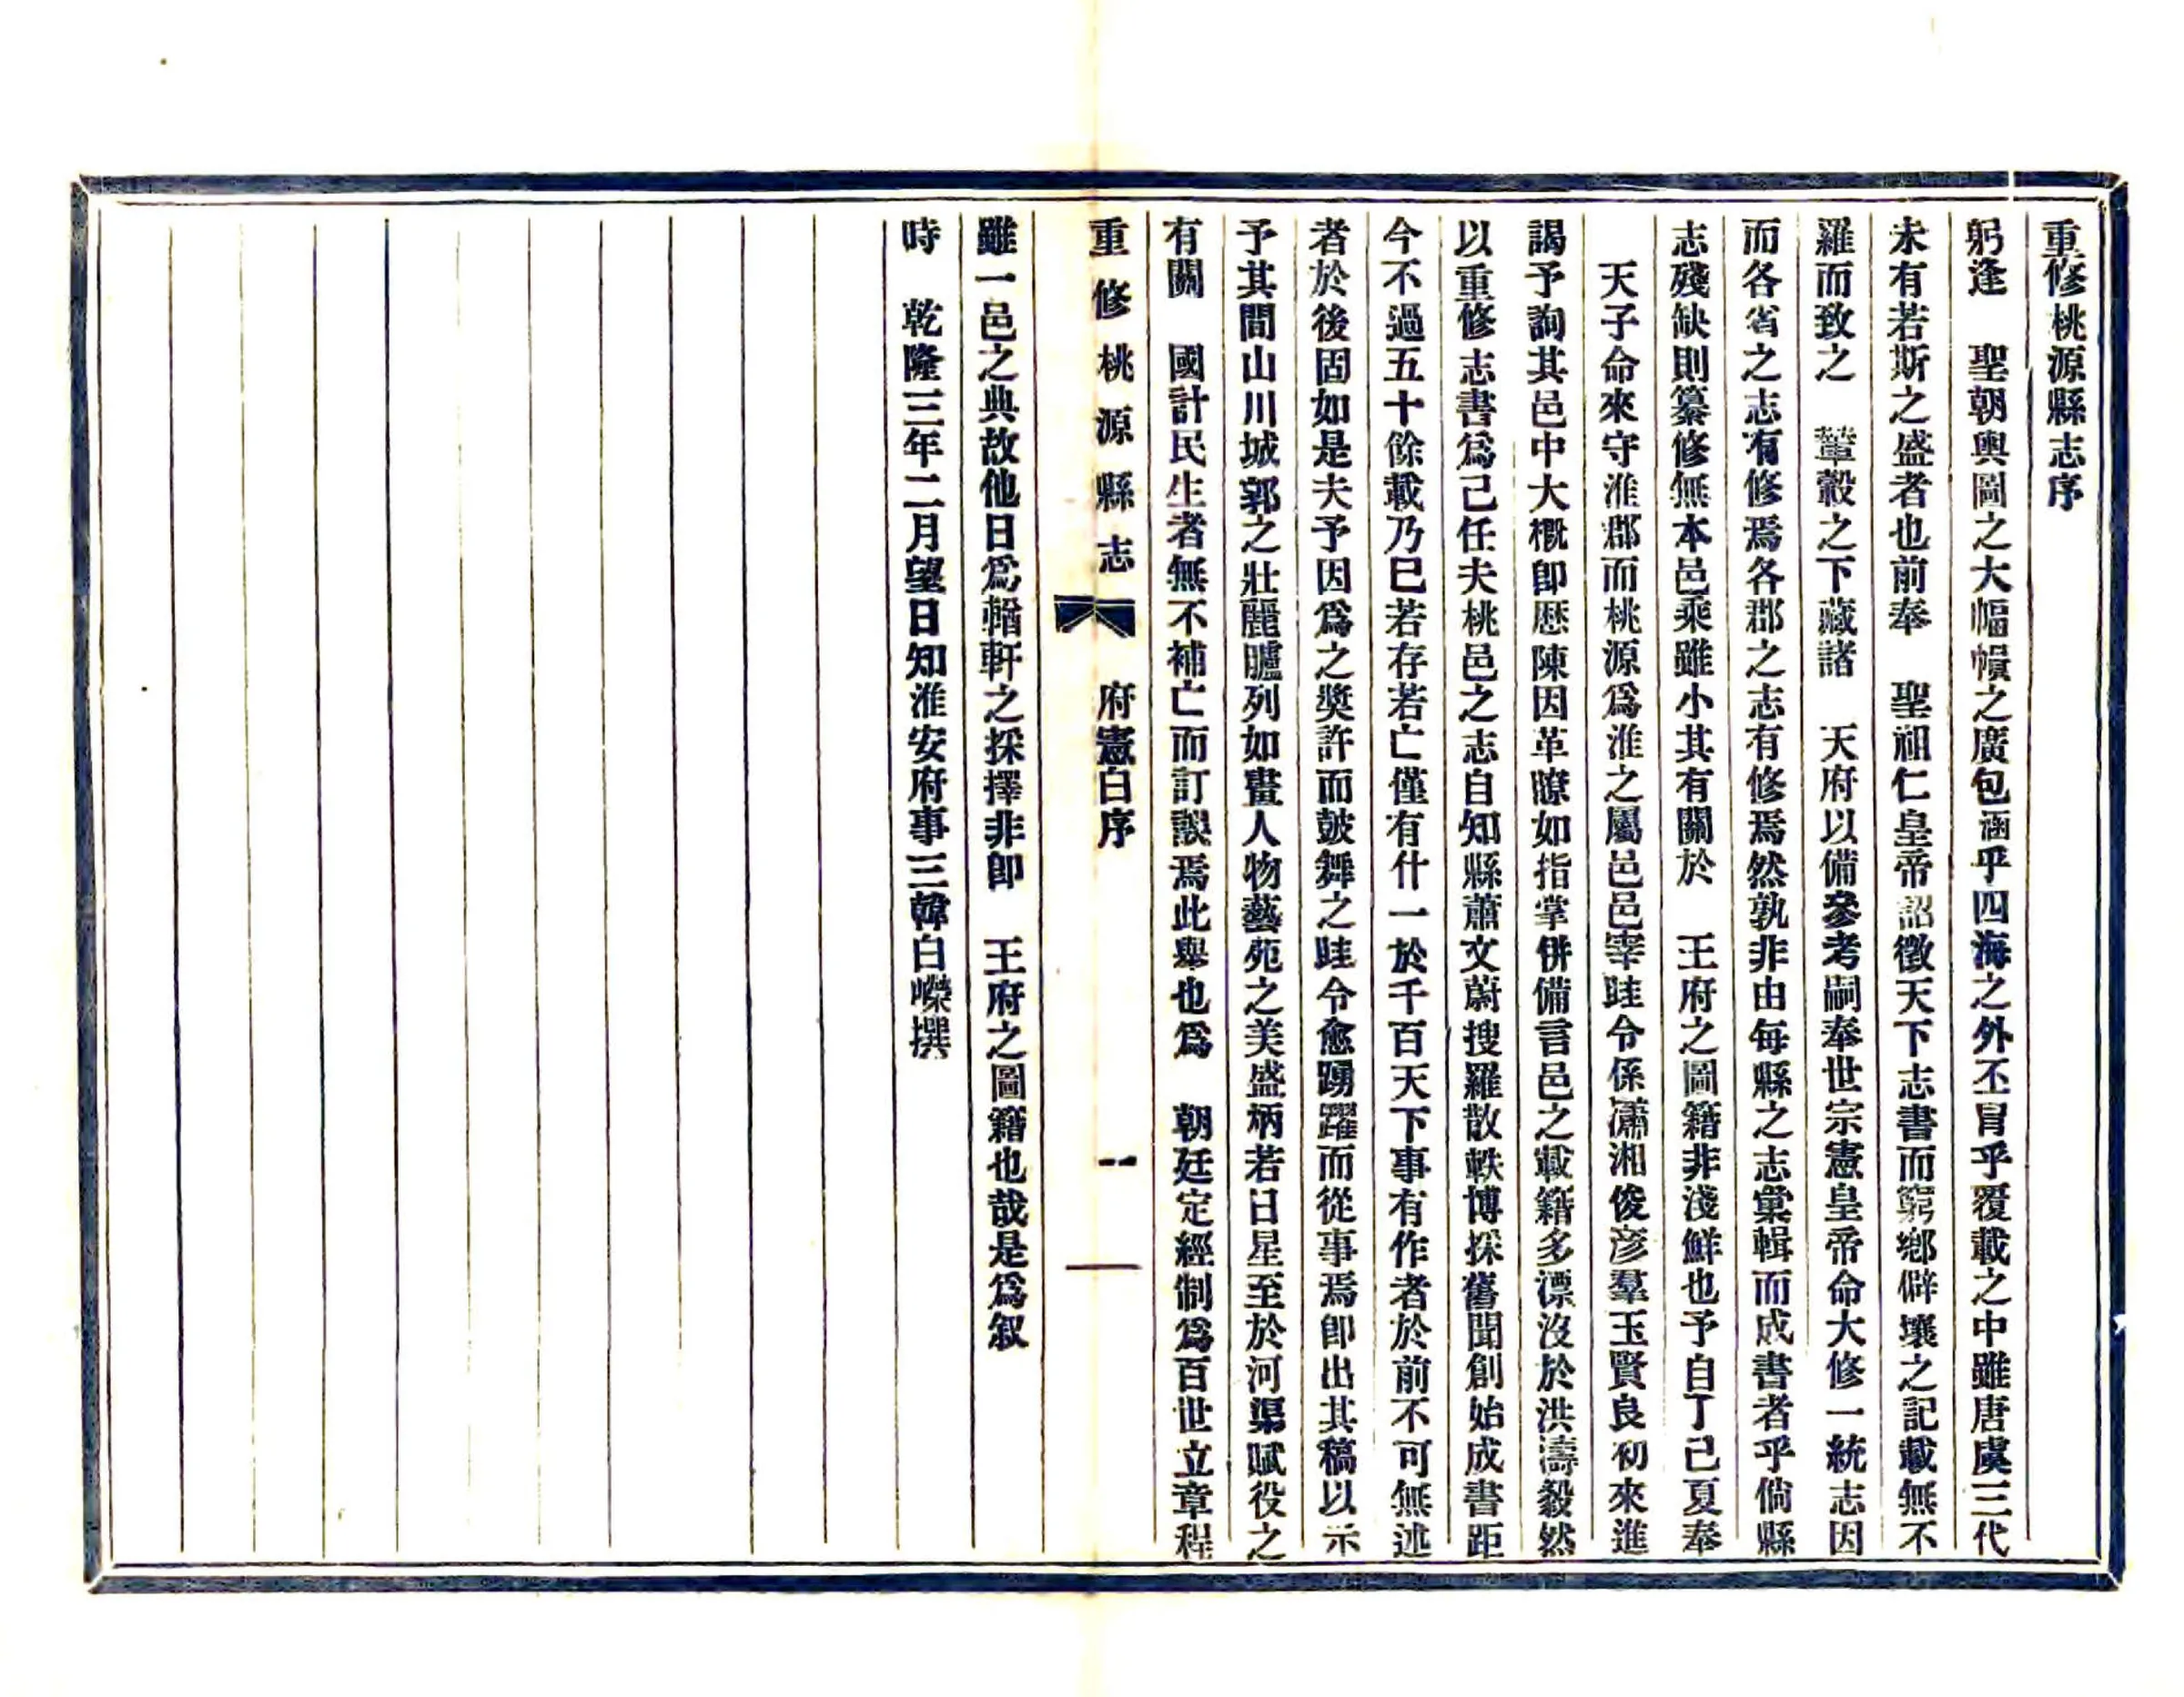 重修桃源縣志序
躬逢　聖朝輿圖之大幅幀之廣包涵乎四海之外丕冒乎覆載之中雖唐虞三代
未有若斯之盛者也前奉　聖祖仁皇帝詔徵天下志書而窮鄉僻壤之記載無不
羅而致之　輦轂之下藏諸　天府以備參考嗣奉世宗憲皇帝命大修一統志因
而各省之志有修焉各郡之志有修焉然孰非由每縣之志彙輯而成書者乎倘縣
志殘缺則纂修無本邑乘雖小其有關於　王府之圖籍非淺鮮也予自丁巳夏奉
　天子命來守淮郡而桃源爲淮之屬邑邑宰眭令係瀟湘俊彥羣玉賢良初來進
謁予詢其邑中大概卽歷陳因革瞭如指掌併備言邑之載籍多漂沒於洪濤毅然
以重修志書爲己任夫桃邑之志自知縣蕭文蔚搜羅散軼博採舊聞創始成書距
今不過五十餘載乃巳若存若亡僅有什一於千百天下事有作者於前不可無述
者於後固如是夫予因爲之獎許而鼓舞之眭令愈踴躍而從事焉卽出其稿以示
予其間山川城郭之壯麗臚列如畫人物藝苑之美盛炳若日星至於河渠賦役之
有關　國計民生者無不補亡而訂誤焉此舉也爲　朝廷定經制爲百世立章程
重修桃源縣志　府憲白序　一
雖一邑之典故他日爲輶軒之採擇非卽　王府之圖籍也哉是爲叙
時　乾隆三年二月望日知淮安府事三韓白嶸撰